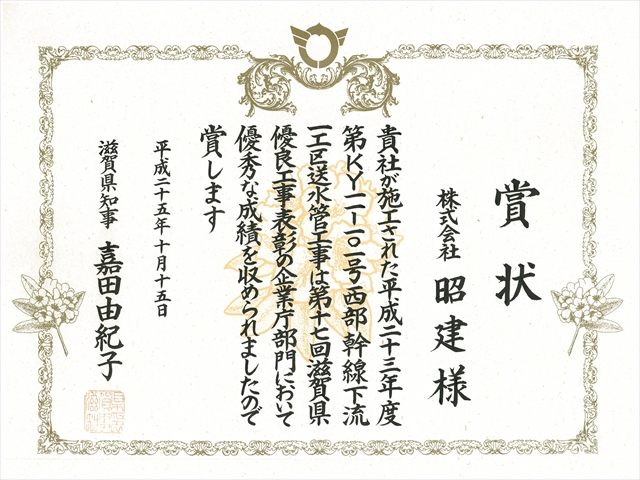 賞状
株式会社 昭建様
貴社が施工された平成二十三年度
第KY一一-一〇一号西部幹線下流
一工区送水管工事は第十七回滋賀県
優良工事表彰の企業庁部門において
優秀な成績を収められましたので
賞します
平成二十五年十月十五日
滋賀県知事 嘉田由紀子